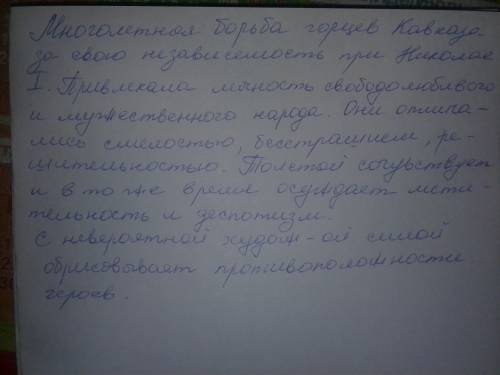 Многолетная борьба горцев Кавказа
за свою независемость при Николае
I. Привлекала личность свободолюбивого
и мужественного народа. Они отлича-
лись смелостью, бесстрашием, ре-
шительностью. Толстой сочувствует
и в то же время осуждает мсти-
тельность и деспотизм.
С невероятной худож-ой силой
обрисовывает противоположности
героев.